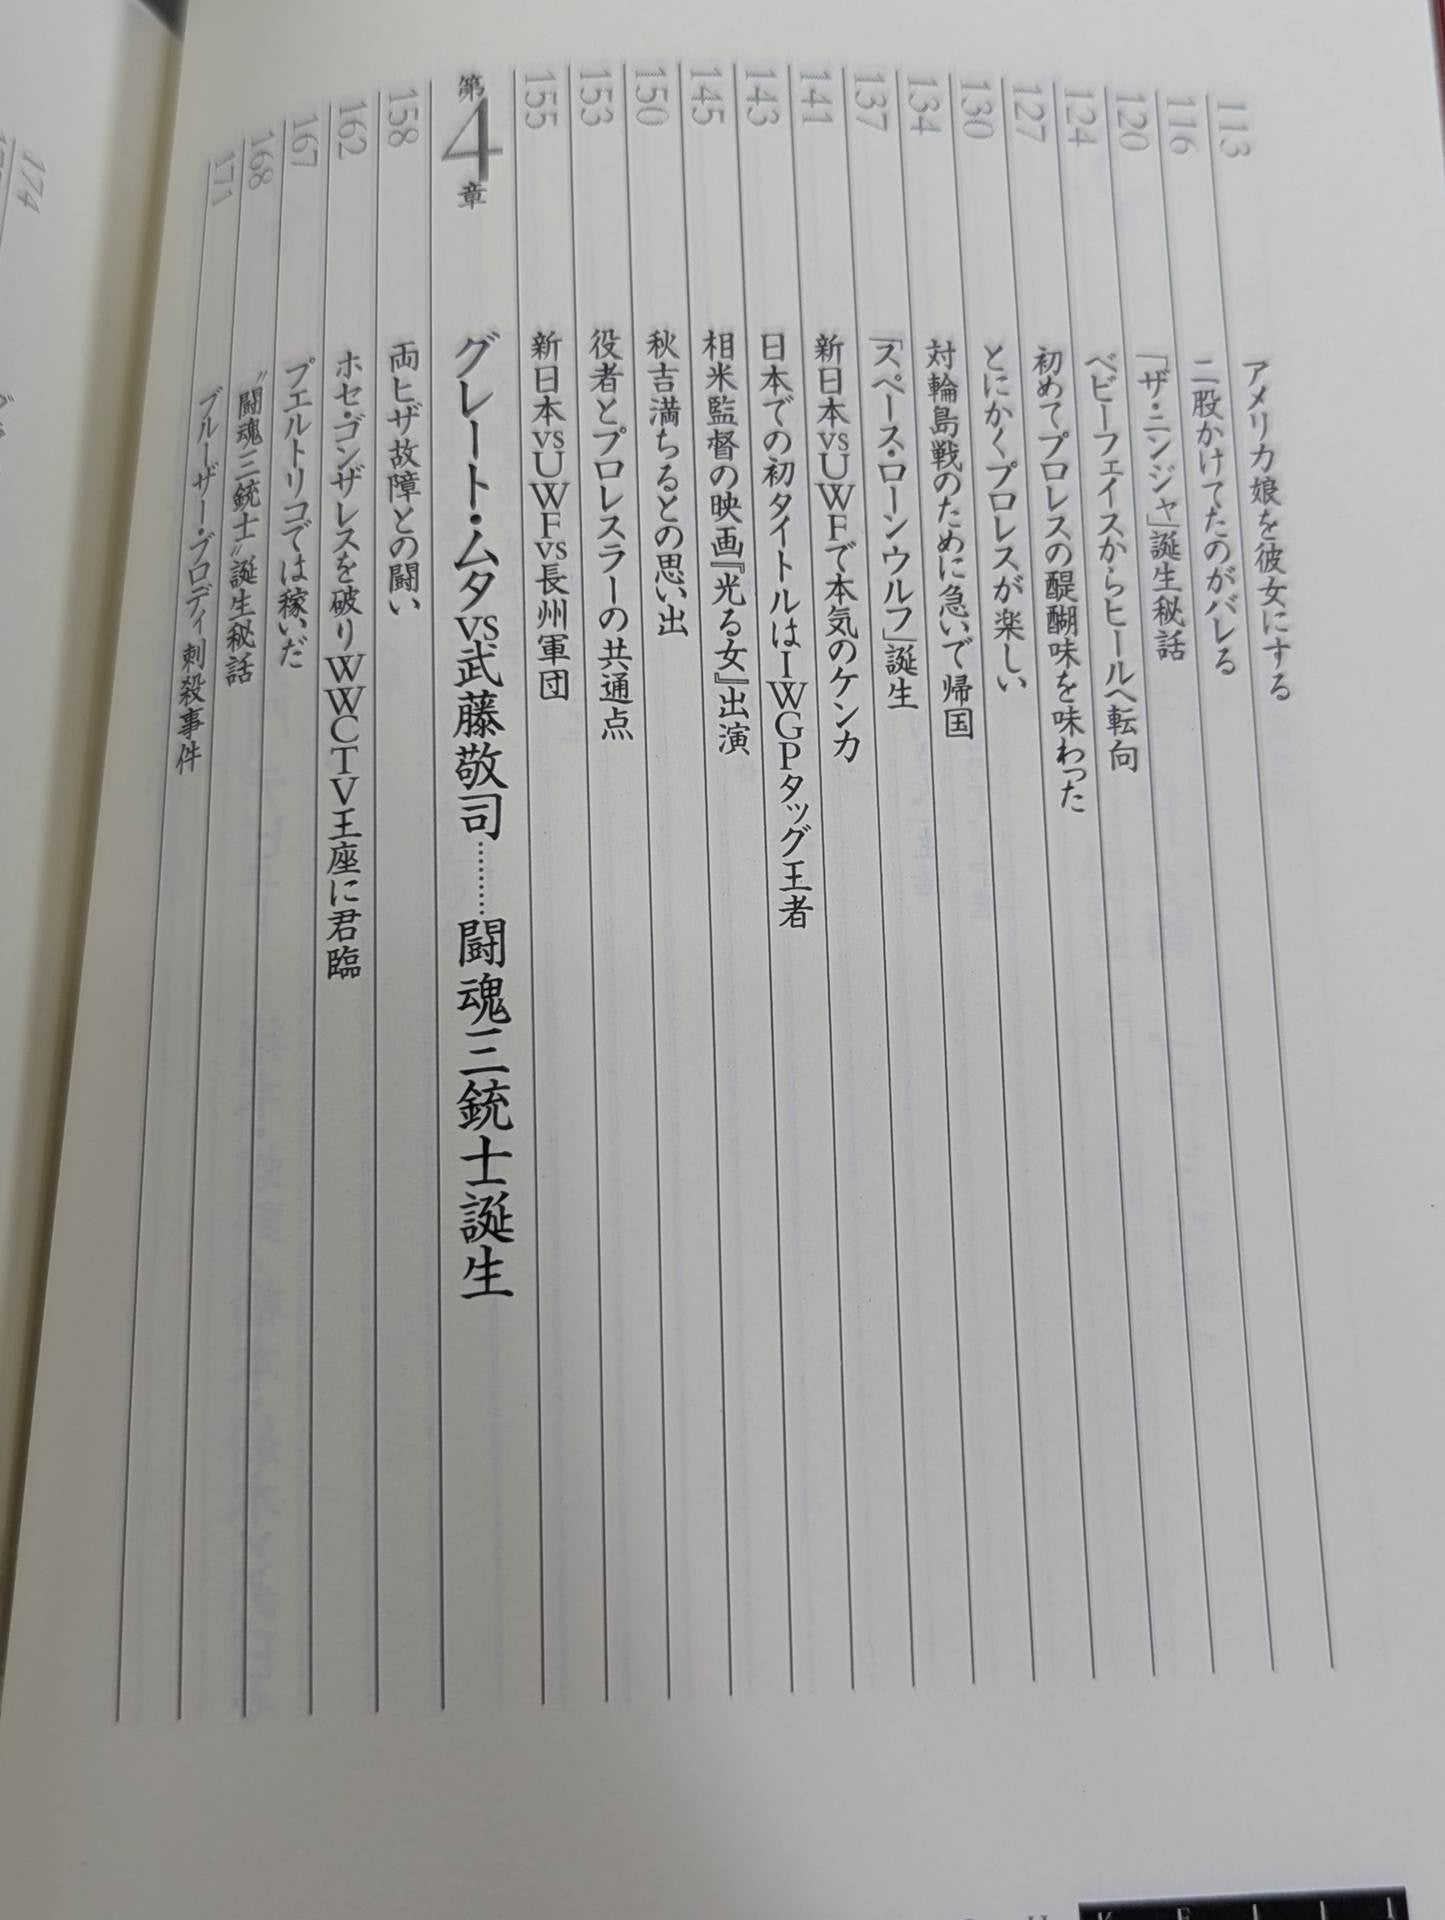 113 アメリカ娘を彼女にする
116 二股かけてたのがバレる
120 「ザ・ニンジャ」誕生秘話
124 ベビーフェイスからヒールへ転向
127 初めてプロレスの醍醐味を味わった
130 とにかくプロレスが楽しい
134 対輪島戦のために急いで帰国
137 「スペース・ローンウルフ」誕生
141 新日本vsUWFで本気のケンカ
143 日本での初タイトルはIWGPタッグ王者
145 相米監督の映画『光る女』出演
150 秋吉満ちるとの思い出
153 役者とプロレスラーの共通点
155 新日本vsUWFvs長州軍団
第4章 グレート・ムタvs武藤敬司………闘魂三銃士誕生
158 両ヒザ故障との闘い
162 ホセ・ゴンザレスを破りWWCTV王座に君臨
167 プエルトリコでは稼いだ
168 〝闘魂三銃士〟誕生秘話
171 ブルーザー・ブロディ刺殺事件
174